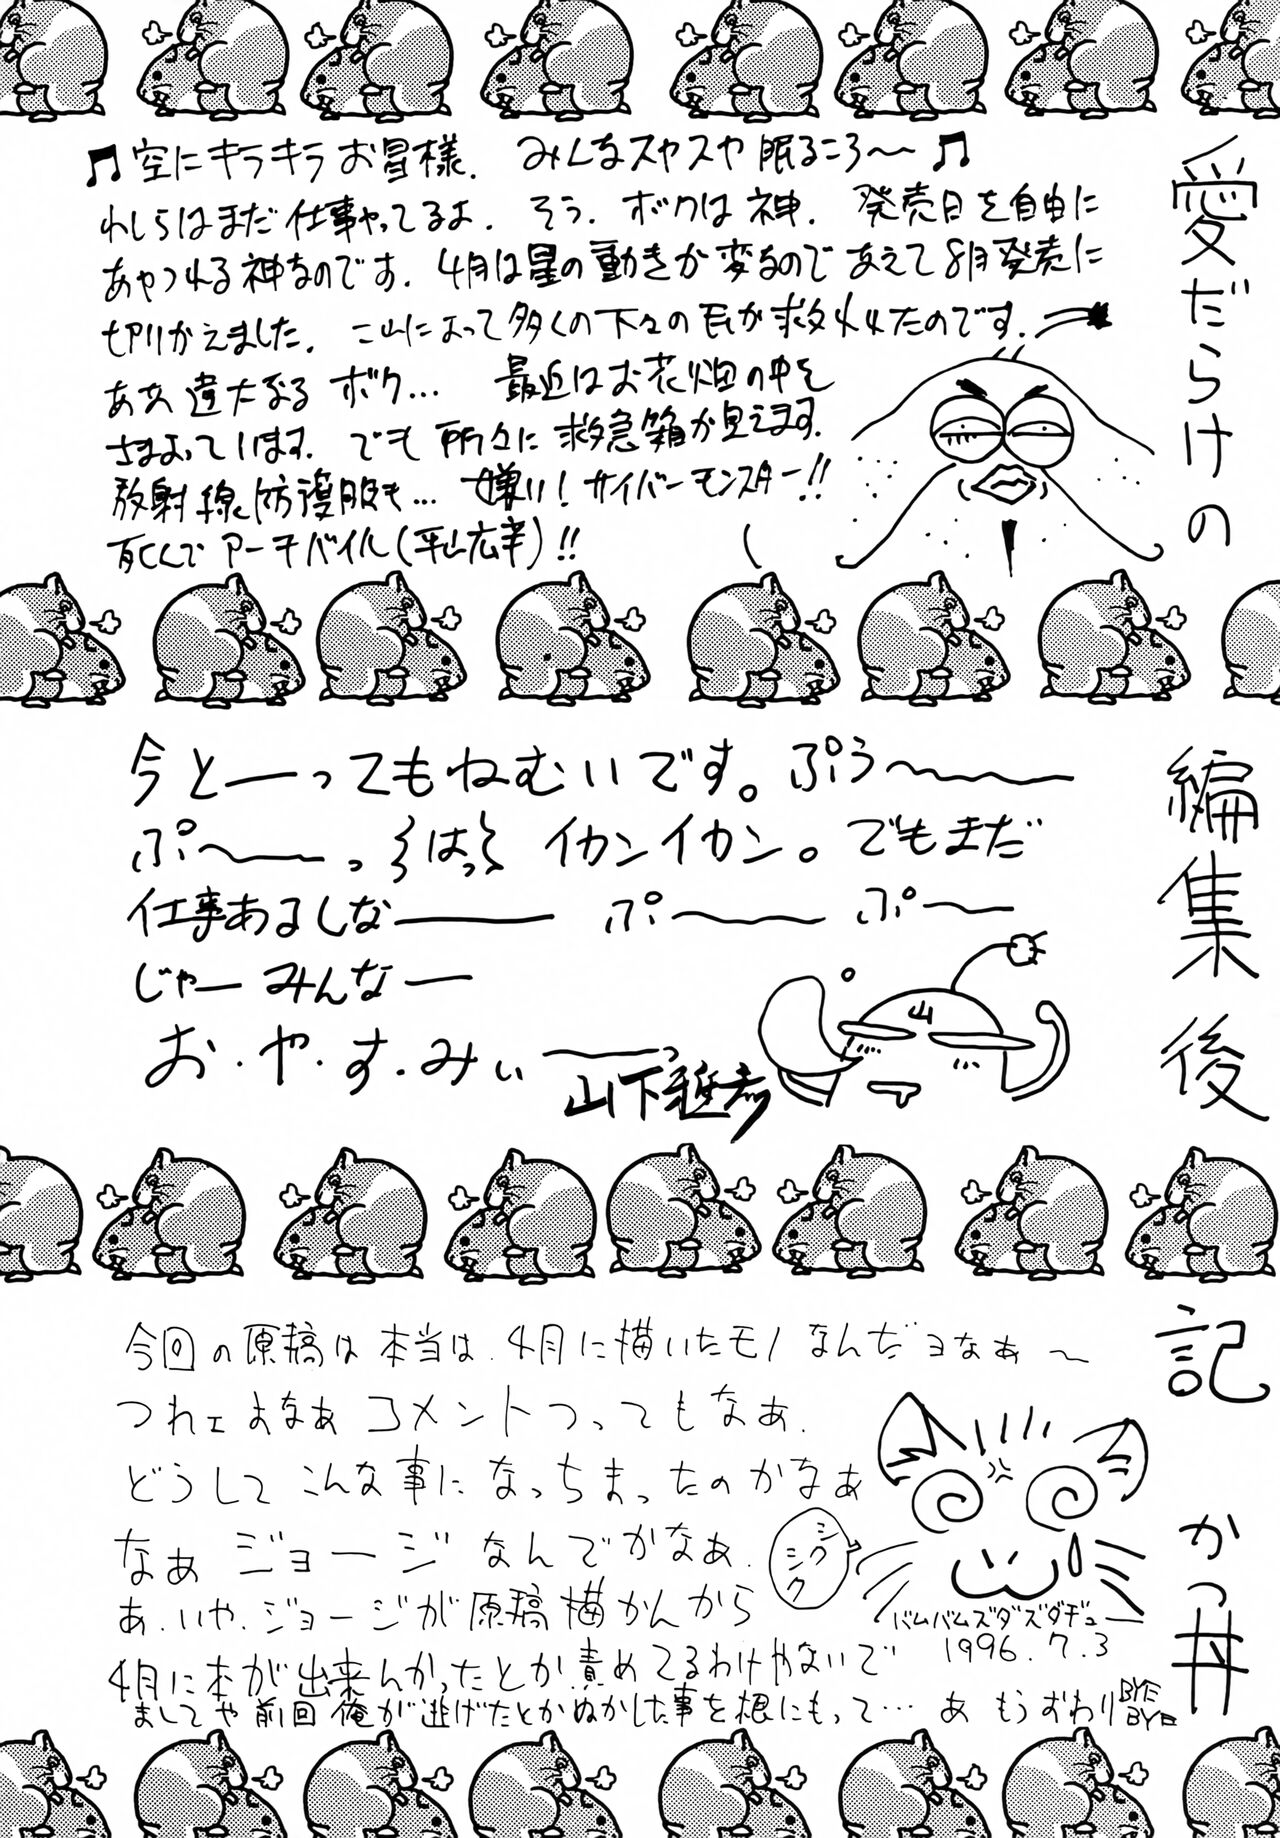 愛だらけの
編集後
記
かつ丼
♫空にキラキラお星様. みんなスヤスヤ眠るころ〜♫
わしらはまだ仕事やってるよ. そう. ボクは神. 発売日を自由に
あやつれる神なのです. 4月は星の動きが変なのであえて8月発売に
切りかえました. これによって多くの下々の民が救われたのです.
ああ 違大なる ボク… 最近はお花畑の中を
さまよっています. でも 所々に 救急箱が見えます.
放射線防護服も… 嫌い! サイバーモンスター!!
死んで アーキバイル(平山広幸)!!
今と――ってもねむいです。ぷぅ〜――
ぷ〜――っ はっ イカンイカン。でもまだ
仕事あるしな―― ぷ――〜 ぷ〜―
じゃー みんなー
お・や・す・みぃ――っ
山下
山
今回の原稿は 本当は. 4月に描いたモノなんだヨなぁ〜
つれェよなぁ コメントつってもなぁ.
どうして こんな事に なっちまったのかなぁ
なぁ ジョージ なんでかなぁ.
あ. いや. ジョージが原稿描かんから
4月に本が出来んかったとか責めてるわけやないで
ましてや 前回 俺が逃げたとかぬかした事を根にもって… あ もうおわり BYE BYE
シクシク
バムバムズダズダヂュー
1996. 7. 3